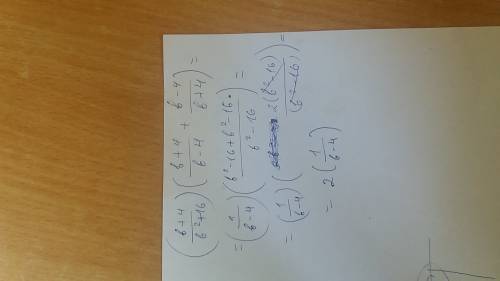 (b+4 / b²+16) (b+4 / b-4 + b-4 / b+4) =
= (1 / b-4) (b²-16+b²-16 / b²-16) =
= (1 / b-4) (2(b²-16) / (b²-16)) =
= 2 (1 / b-4)